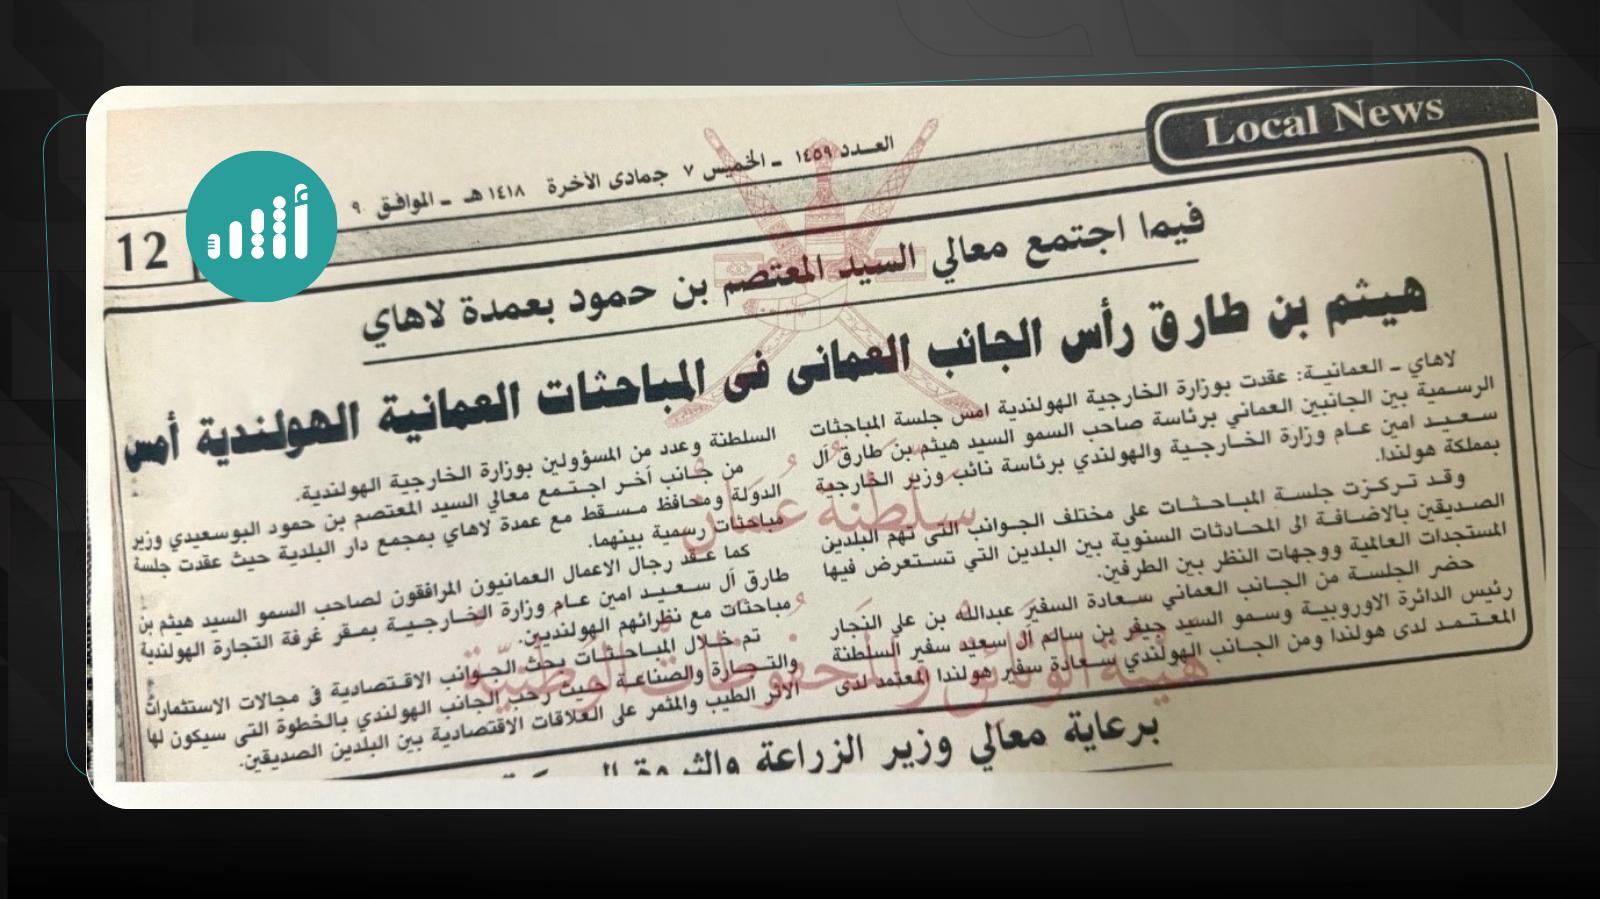 Local News
العـــدد ١٤٥٩ ــ الخميس ٧ جمادى الآخرة ١٤١٨ هـ ــ الموافـق ٩
12
فيما اجتمع معالي السيد المعتصم بن حمود بعمدة لاهاي
هيثم بن طارق رأس الجانب العمانى فى المباحثات العمانية الهولندية أمس
لاهاي ــ العمانيـة: عقدت بوزارة الخارجية الهولندية امس جلسة المباحثات
الرسـمية بين الجانبين العماني برئاسة صاحب السمو السيد هيثم بن طارق آل
سـعـيـد امين عـام وزارة الخـارجـية والهولندي برئاسة نائب وزير الخارجية
بمملكة هولندا.
وقـد تـركـزت جلسـة المباحـثـات على مختلف الجـوانب التى تهم البلدين
الصـديقين بالاضـافـة الى المحـادثات السنوية بين البلدين التي تسـتعرض فيها
المستجدات العالمية ووجهات النظر بين الطرفين.
حضر الجلسـة من الجـانب العماني سـعادة السفير عبدالله بن علي النجار
رئيس الدائرة الاوروبيـة وسمو السيد جيفر بن سالم آل سعيد سفير السلطنة
المعـتـمـد لدى هولندا ومن الجـانب الهولندي سـعادة سفير هولندا المعتمد لدى
السلطنة وعدد من المسؤولين بوزارة الخارجية الهولندية.
من جـانب آخـر اجـتـمع معالي السيد المعتصم بن حمود البوسعيدي وزير
الدولة ومحافظ مـسـقط مع عمدة لاهاي بمجمع دار البلدية حيث عقدت جلسة
مباحثات رسمية بينهما.
كما عـقد رجال الاعمال العمانيون المرافقون لصاحب السمو السيد هيثم بن
طارق آل سـعـيـد امين عـام وزارة الخـارجـيـة بمـقر غرفة التجارة الهولندية
مباحثات مع نظرائهم الهولنديين.
تم خـلال المبـاحـثـات بحث الجـوانب الاقـتصادية في مجالات الاستثمارات
والتـجـارة والصناعـة حـيث رحب الجانب الهولندي بالخطوة التى سيكون لها
الاثر الطيب والمثمر على العلاقات الاقتصادية بين البلدين الصديقين.
سلطنة عُمان
هيئة الوثائق والمحفوظات الوطنية
برعاية معالي وزير الزراعة والثروة